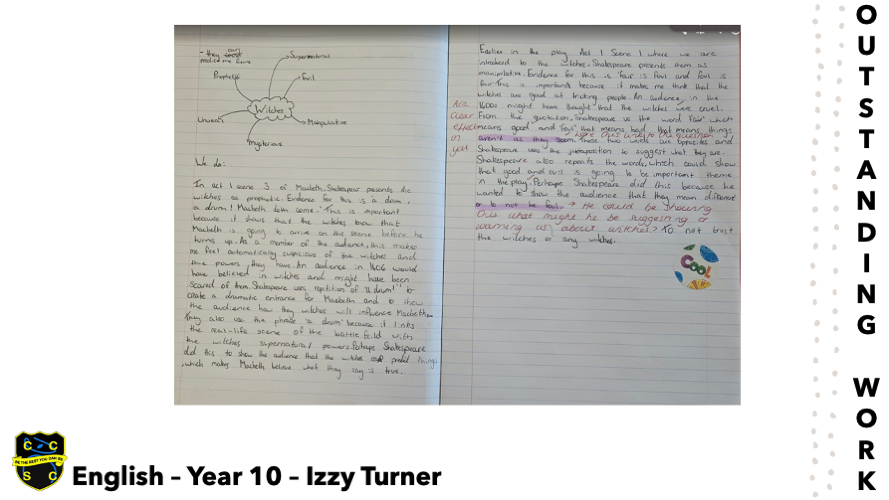 - they can trust
predict the future
Supernatural
Evil
Prophetic
Witches
Unusual
Manipulative
Mysterious
We do:
In act 1 scene 3 of Macbeth, Shakespear presents the
witches as prophetic. Evidence for this is "a drum,
a drum! Macbeth doth come." This is important
because it shows that the witches know that
Macbeth is going to arrive on the scene before he
turns up. As a member of the audience, this makes
me feel automatically suspicious of the witches and
the powers they have. An audience in 1606 would
have believed in witches and might have been
scared of them. Shakespeare uses repitition of "a drum!" to
create a dramatic entrance for Macbeth and to show
the audience how they witches will influence Macbeth.
They also use the phrase "a drum" because it links
the real-life scene of the battle feild with
the witches supernatural powers. Perhaps Shakespeare
did this to show the audience that the witches can predict things
, which makes Macbeth believe what they say is true.
Earlier in the play, Act 1 Scene 1 where we are
introduced to the witches, Shakespeare presents them as
manipulative. Evidence for this is "fair is foul and foul is
fair." This is important because it makes me think that the
witches are good at tricking people. An audience in the
1600s might have thought that the witches were cruel.
From the quotation, Shakespeare us the word "fair" which
means good and "foul" that means bad, that means things
aren't as they seem. These two words are opposites and
Shakespeare uses the juxtaposition to suggest what they are.
Shakespeare also repeats the words, which could show
that good and evil is going to be important theme
in the play. Perhaps Shakespeare did this because he
wanted to show the audience that they mean different
or to not be foul. → He could be showing
this what might he be suggesting or
warning us about witches? To not trust
the witches or any witches.
clear
effect
on
you
link to the question
COOL
C C
BE THE BEST YOU CAN BE
S C
English – Year 10 – Izzy Turner
OUTSTANDING WORK